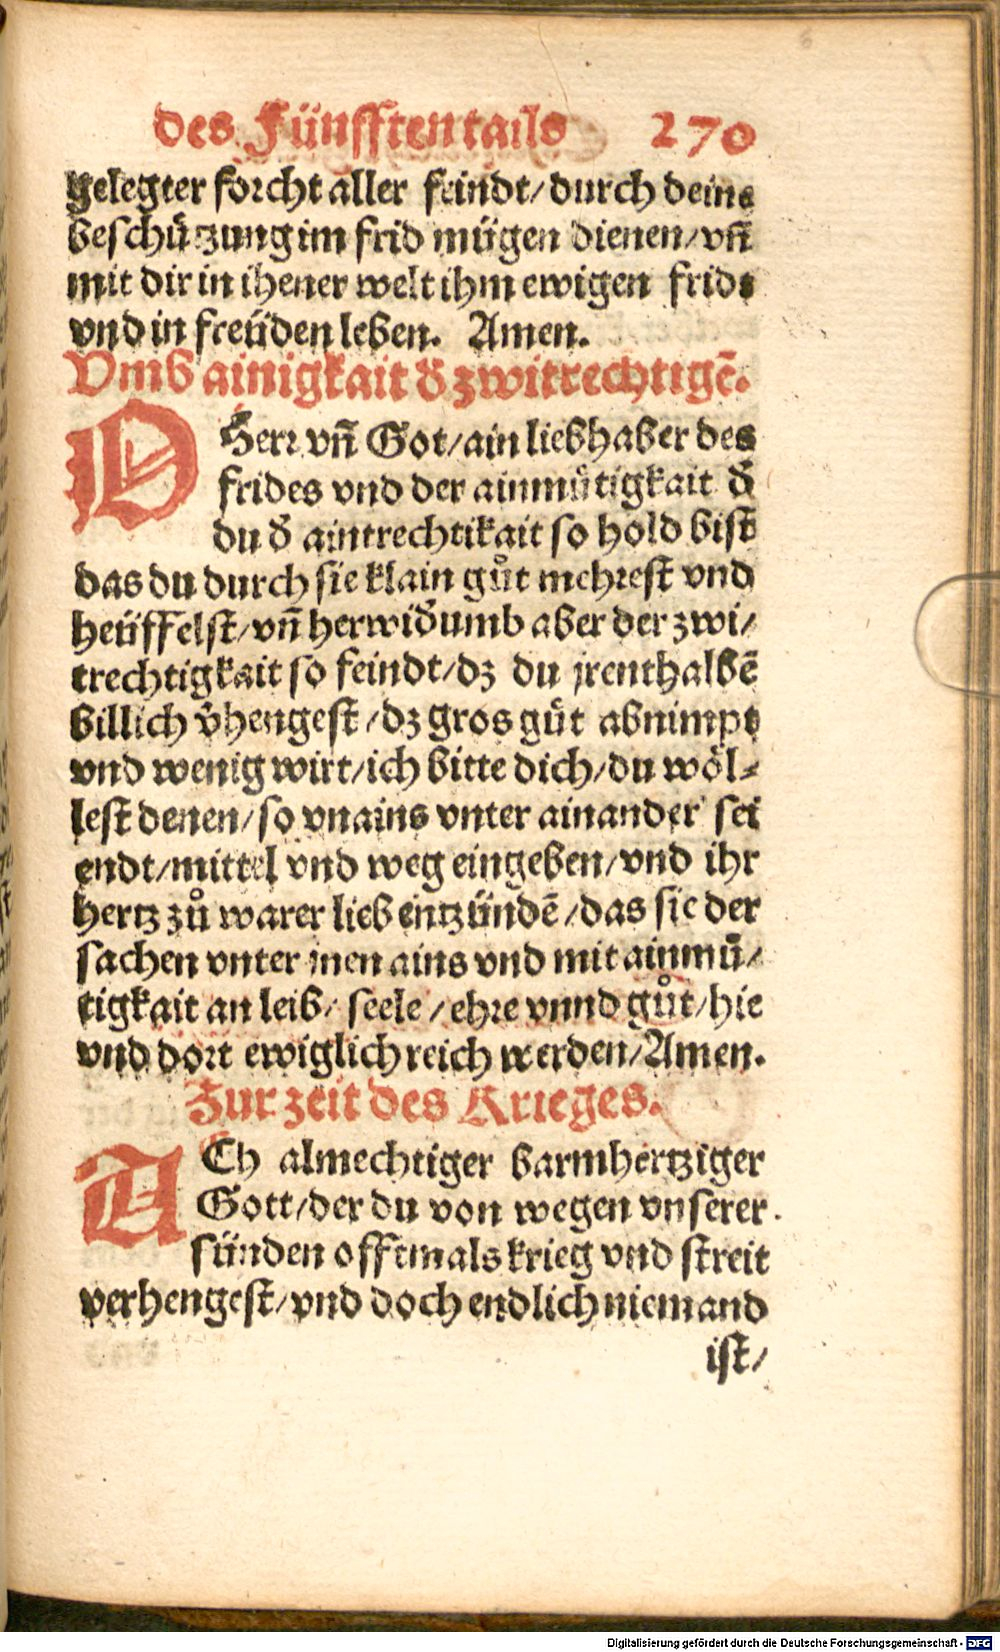 des Fünfften tails 270
gelegter forcht aller feindt/ durch deine
beschützung im frid mügen dienen/ vñ
mit dir in ihener welt ihm ewigen fride
vnd in freüden leben. Amen.
Vmb ainigkait d̄ zwitrechtigē.
O Herr vñ Got/ ain liebhaber des
frides vnd der ainmütigkait d̄
du d̄ aintrechtikait so hold bist
das du durch sie klain gůt mehrest vnd
heüffelst/ vñ herwid̄umb aber der zwi/
trechtigkait so feindt/ dz du jrenthalbē
billich v̄hengest/ dz gros gůt abnimpt
vnd wenig wirt/ ich bitte dich/ du wöl-
lest denen/ so vnains vnter ainander sei
endt/ mittel vnd weg eingeben/ vnd ihr
hertz zů warer lieb entzündē/ das sie der
sachen vnter jnen ains vnd mit ainmü/
tigkait an leib/ seele/ ehre vnnd gůt/ hie
vnd dort ewiglich reich werden/ Amen.
Zur zeit des Krieges.
ACh almechtiger barmhertziger
Gott/ der du von wegen vnserer
sünden offtmals krieg vnd streit
verhengest/ vnd doch endlich niemand
ist/
Digitalisierung gefördert durch die Deutsche Forschungsgemeinschaft - DFG